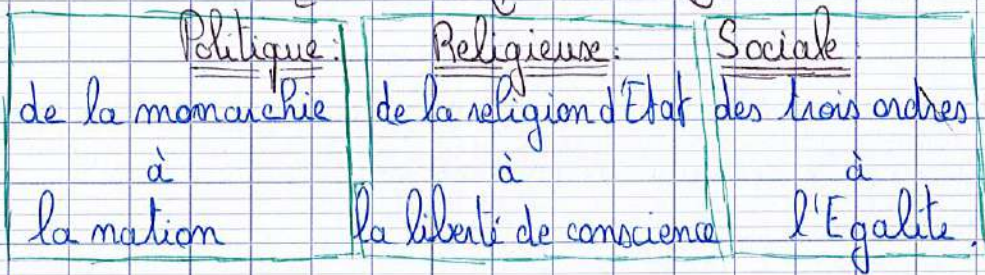 Politique:
de la monarchie
à
la nation
Religieuse:
de la religion d'Etat
à
la liberté de conscience
Sociale:
des trois ordres
à
l'Egalite.